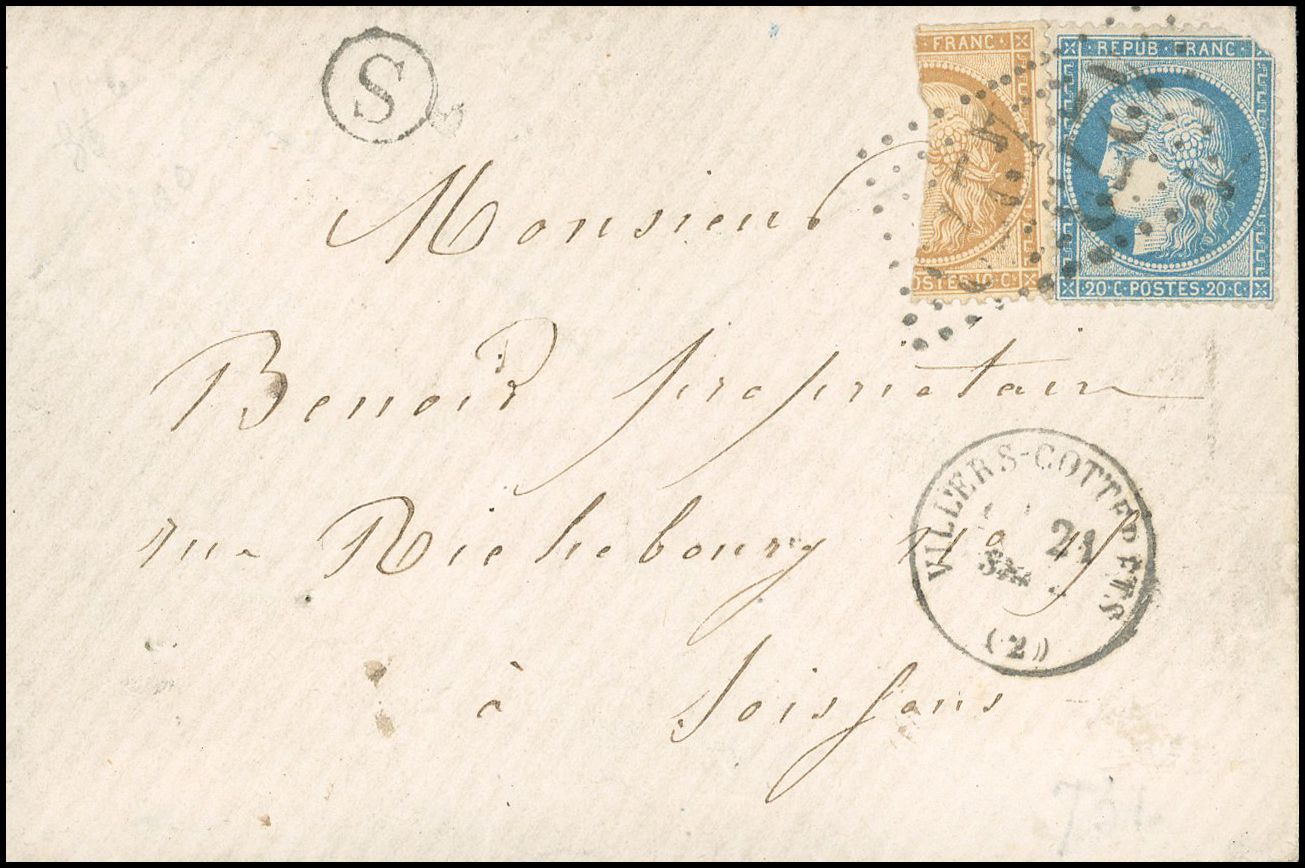 S
FRANC
OSTES 10 C
REPUB FRANC
20 C POSTES 20 C
Monsieur
Benoit propriétair
rue Richebourg no 9
à Soissons
VILLERS-COTTERETS
21
(2)